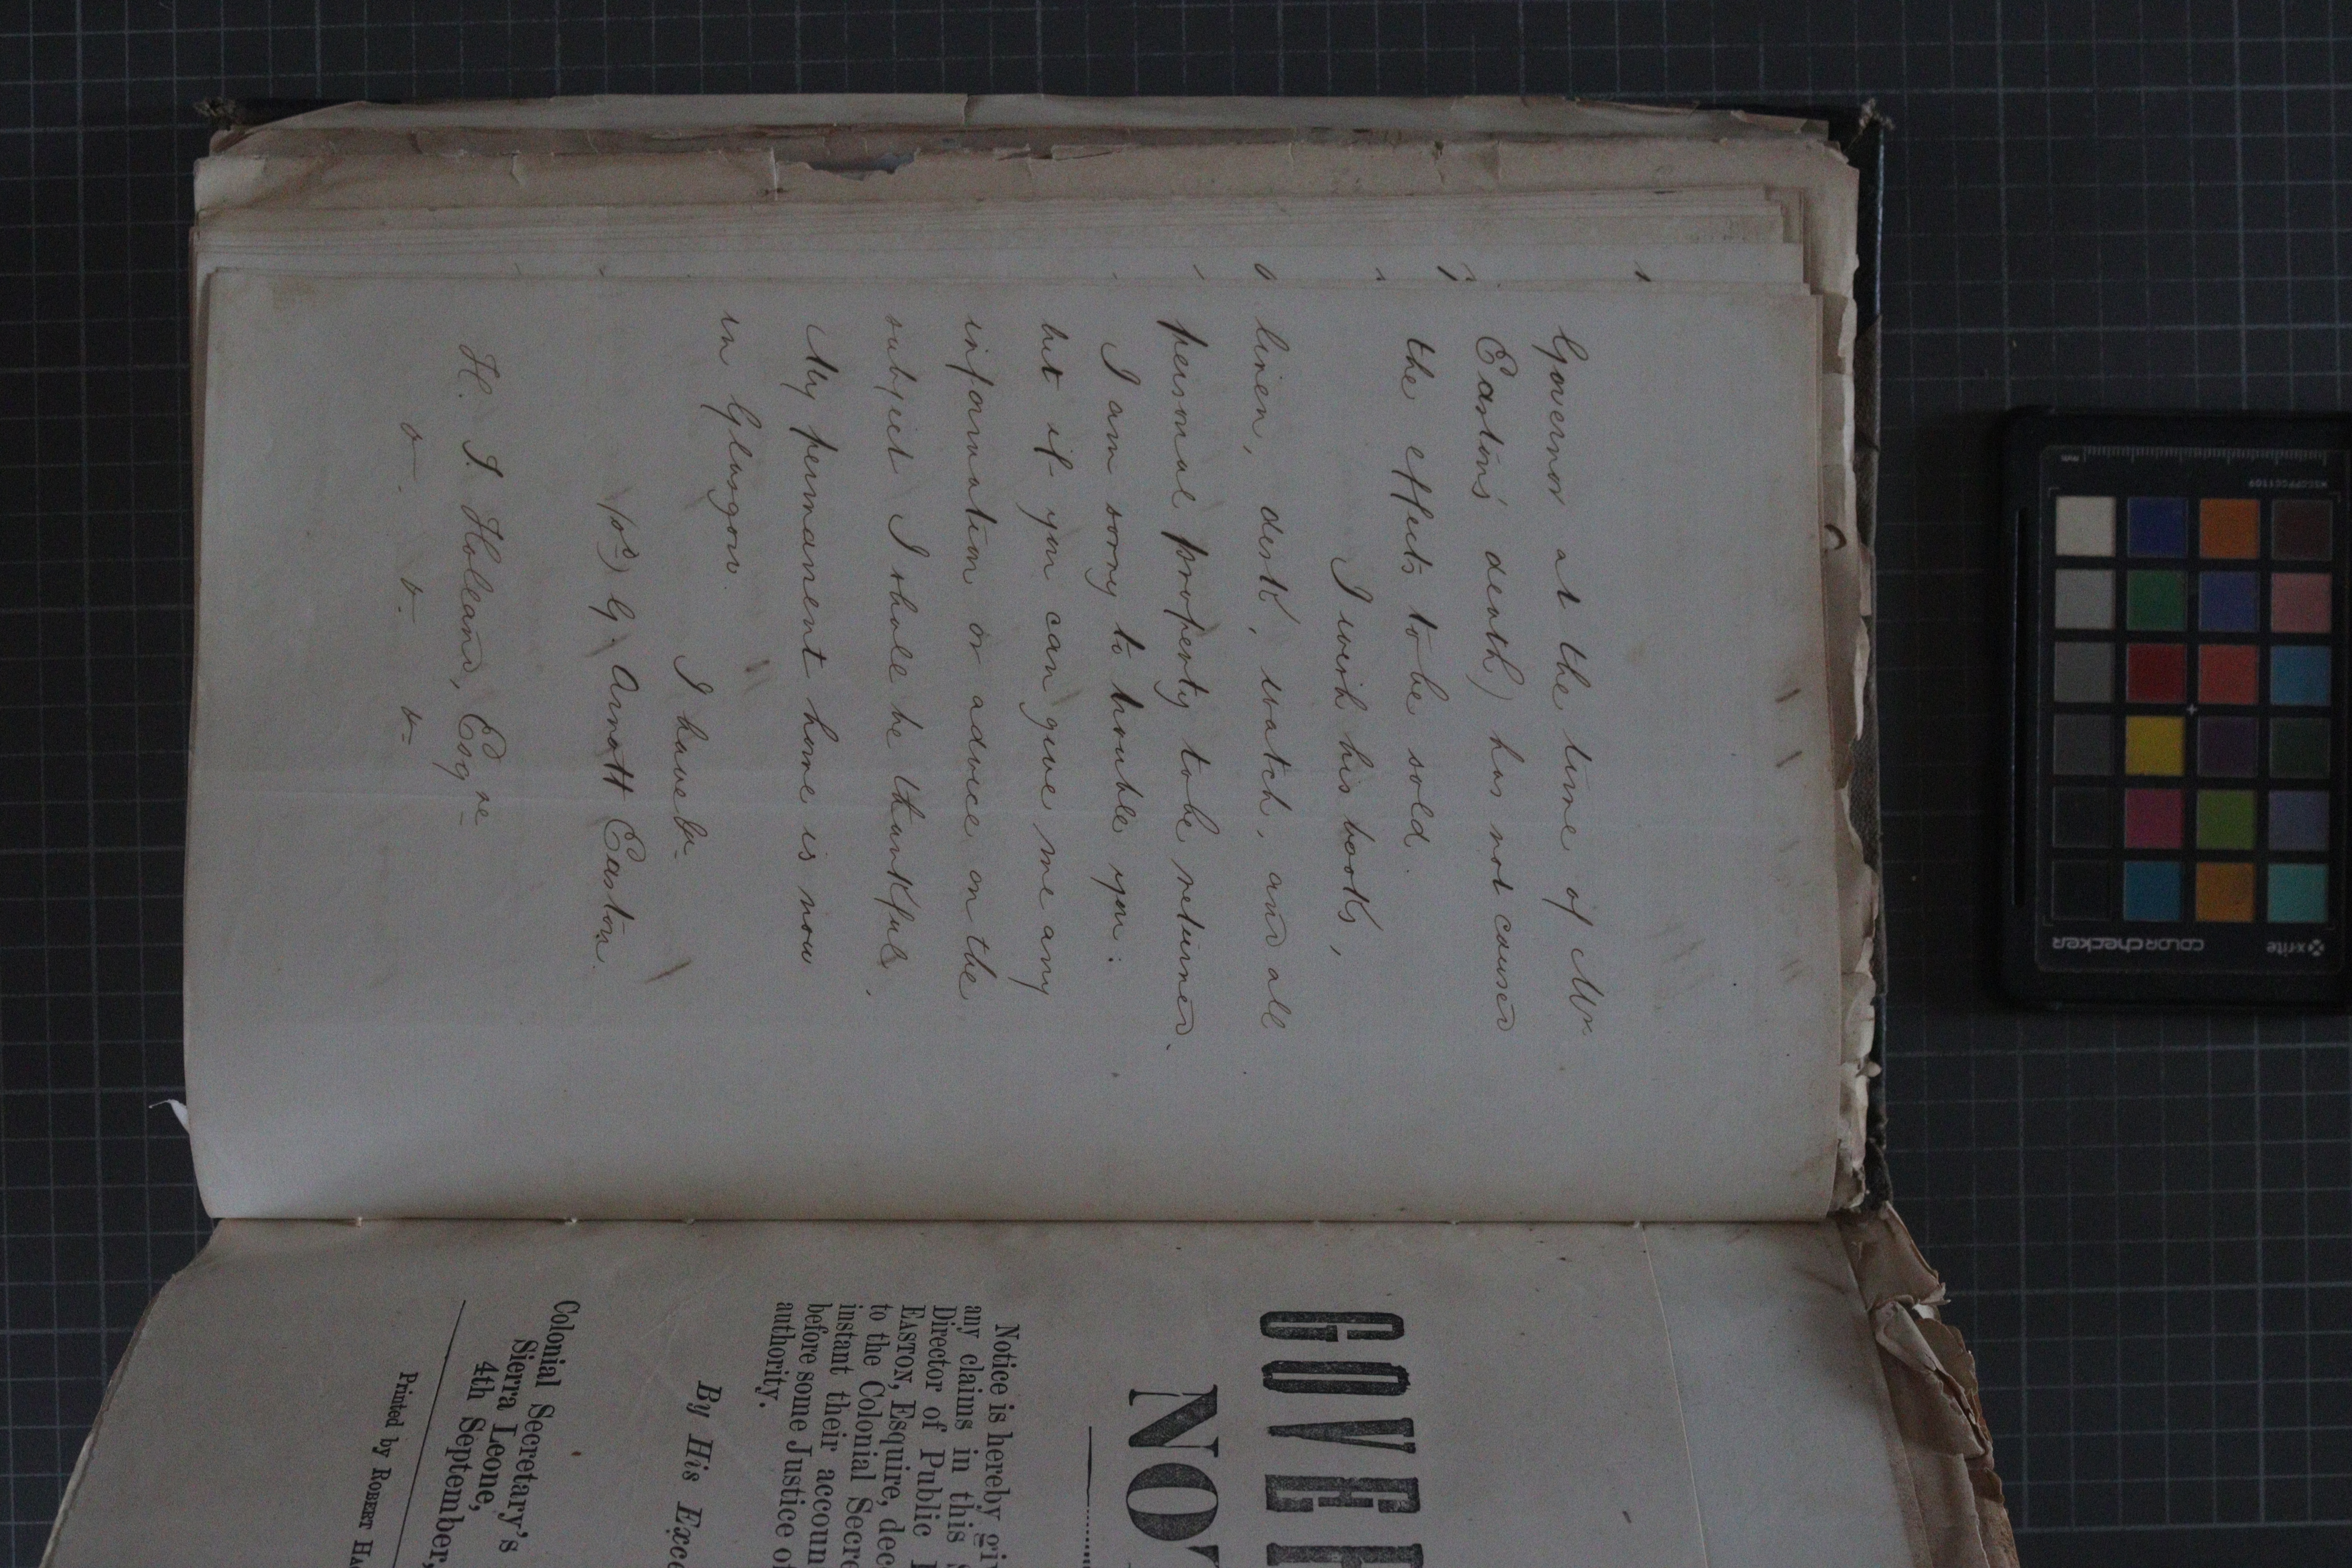 Governor at the time of Mr.
Easton's death) has not caused
the effects to be sold.
I wish his books,
linen, desk, watch, and all
personal property to be returned.
I am sorry to trouble you:
but if you can give me any
information or advice on the
subject I shall be thankful.
My permanent home is now
in Glasgow.
I have &c.
G. Arnott Easton.
H. I. Holland, Esqre
GOVER
NOT
Notice is hereby giv
any claims in this S
Director of Public
EASTON, Esquire, dec
to the Colonial Secre
instant their accoun
before some Justice of
authority.
By His Exce
Colonial Secretary's
Sierra Leone,
4th September,
Printed by ROBERT HA
colorchecker
x-rite
MSCCPPCC1109